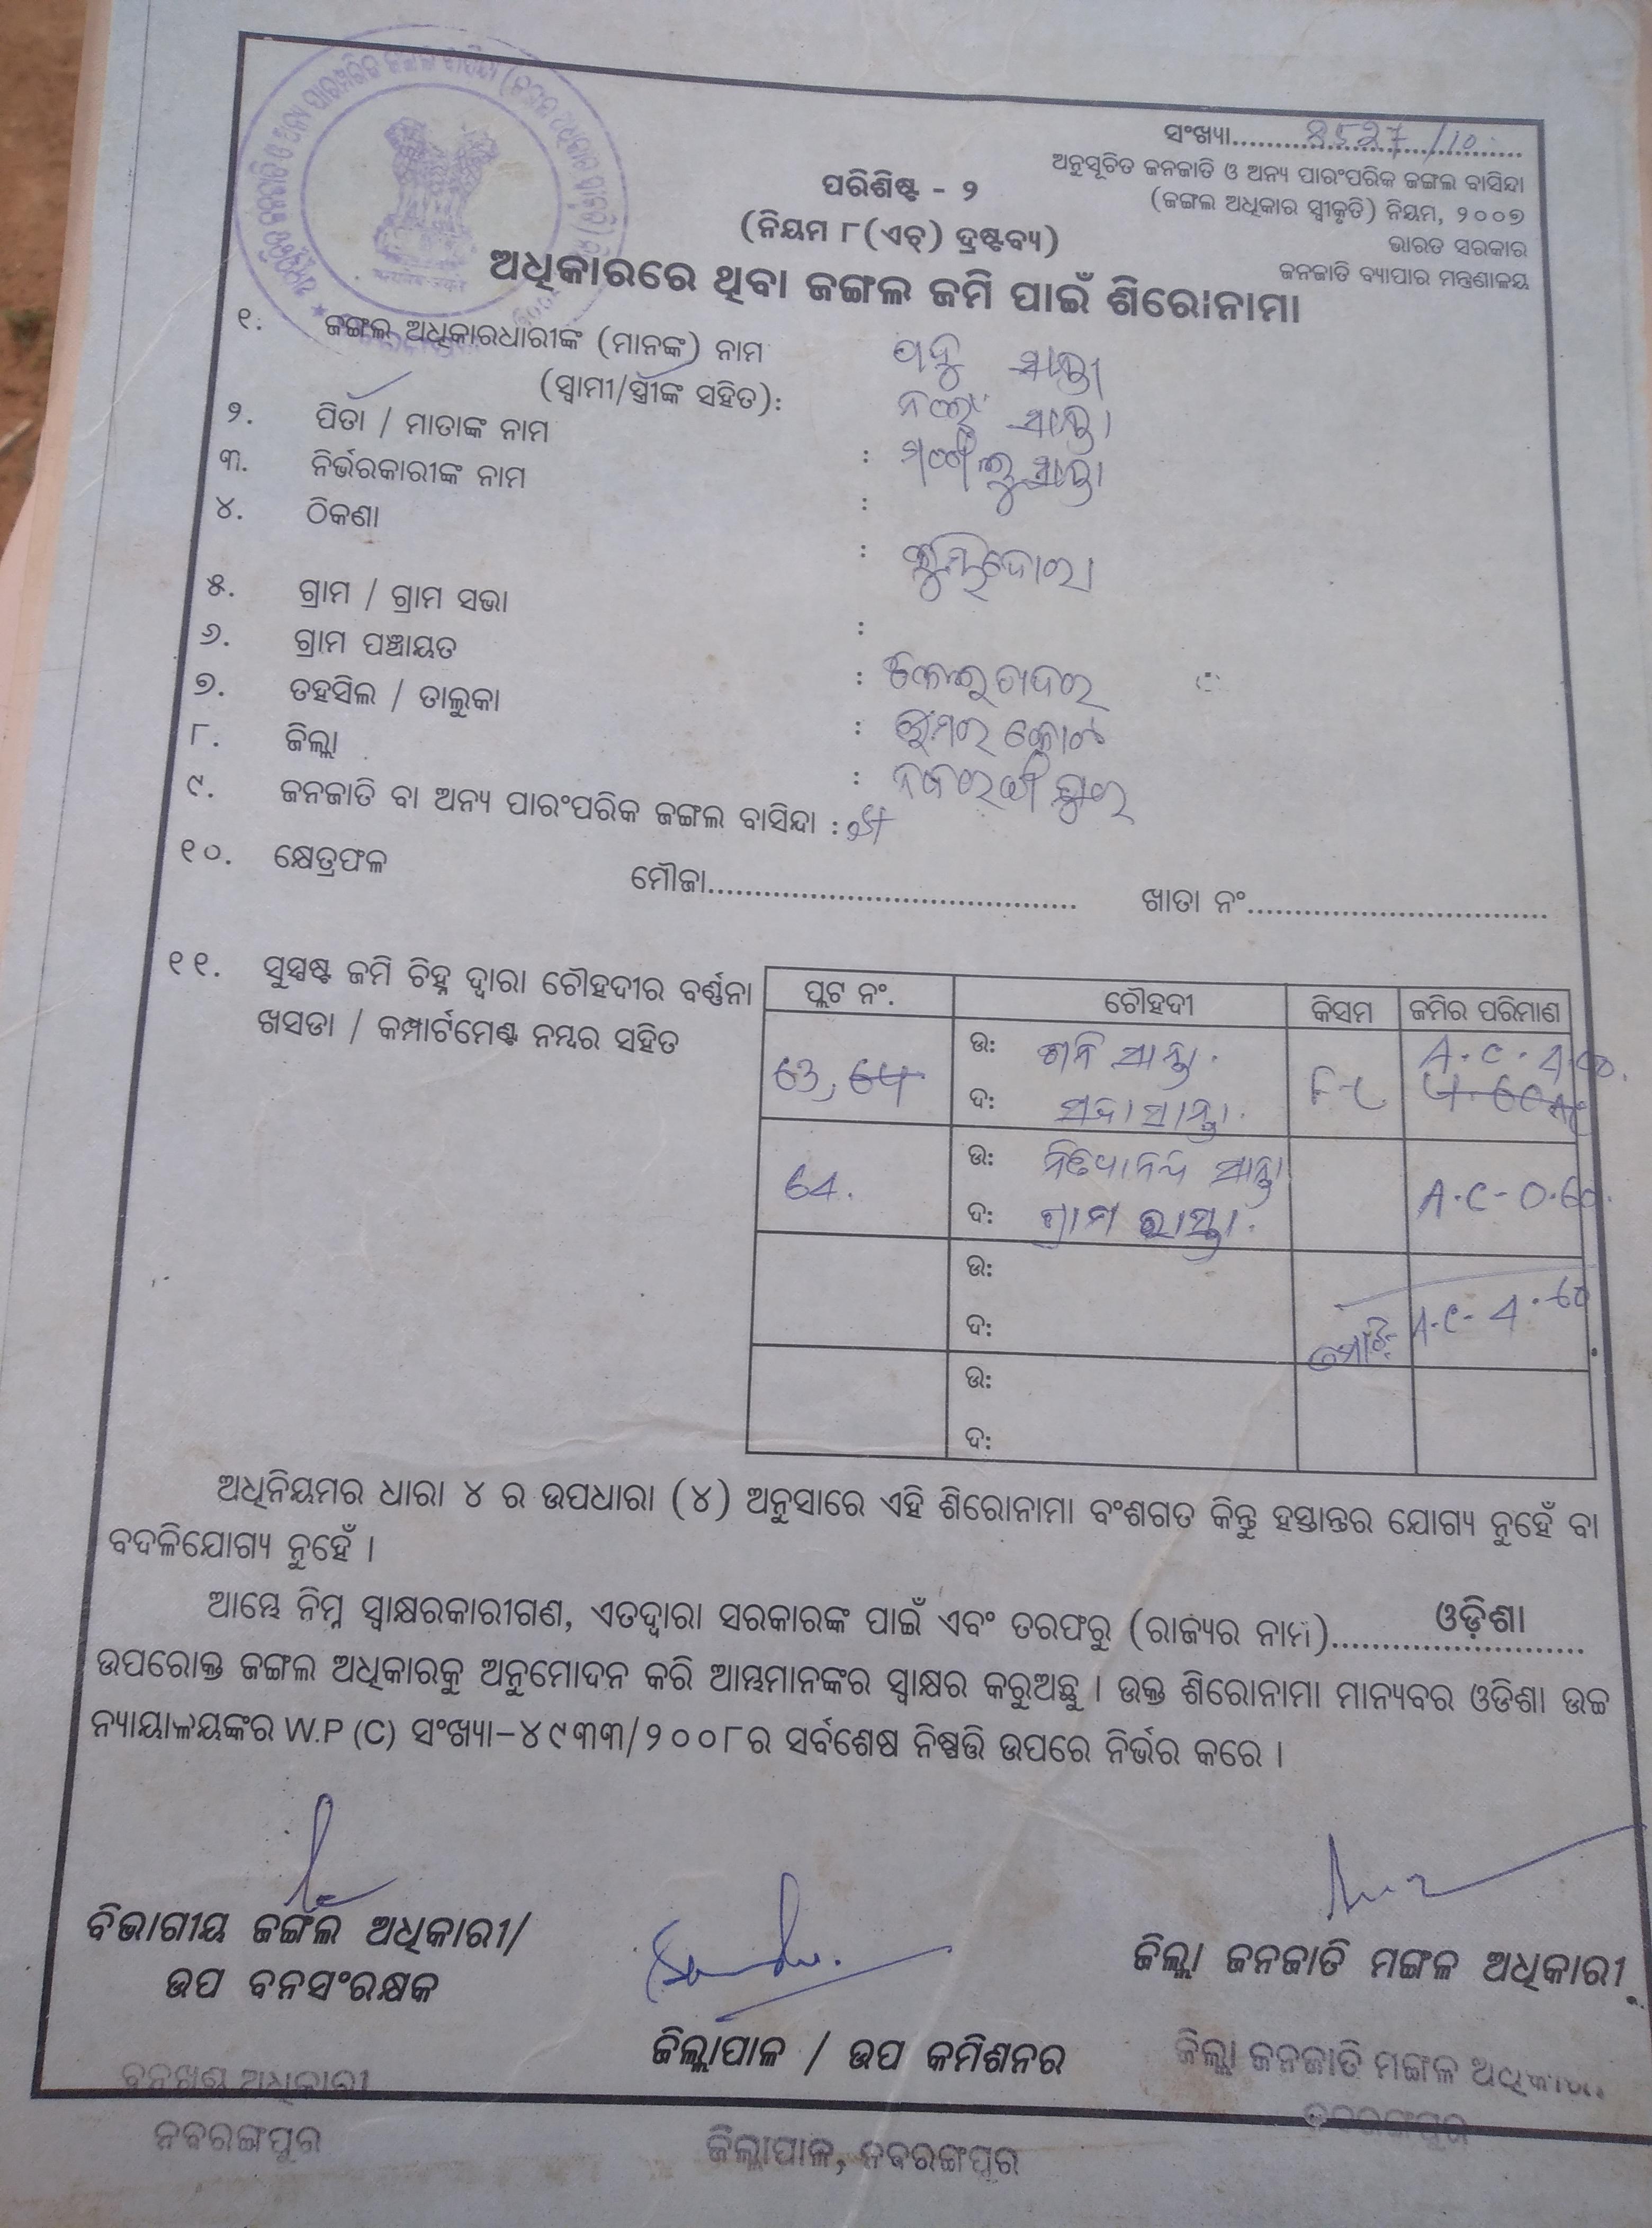 ସଂଖ୍ୟା.................................. /10
ଅନୁସୂଚିତ ଜନଜାତି ଓ ଅନ୍ୟ ପାରଂପରିକ ଜଙ୍ଗଲ ବାସିନ୍ଦା
(ଜଙ୍ଗଲ ଅଧିକାର ସ୍ୱୀକୃତି) ନିୟମ, ୨୦୦୭
ଭାରତ ସରକାର
ଜନଜାତି ବ୍ୟାପାର ମନ୍ତ୍ରଣାଳୟ
ପରିଶିଷ୍ଟ - ୨
(ନିୟମ ୮(ଏଚ୍) ଦ୍ରଷ୍ଟବ୍ୟ)
ଅଧିକାରରେ ଥିବା ଜଙ୍ଗଲ ଜମି ପାଇଁ ଶିରୋନାମା
୧. ଜଙ୍ଗଲ ଅଧିକାରଧାରୀଙ୍କ (ମାନଙ୍କ) ନାମ
(ସ୍ୱାମୀ/ସ୍ତ୍ରୀଙ୍କ ସହିତ):
୨. ପିତା / ମାତାଙ୍କ ନାମ :
୩. ନିର୍ଭରକାରୀଙ୍କ ନାମ :
୪. ଠିକଣା :
୫. ଗ୍ରାମ / ଗ୍ରାମ ସଭା :
୬. ଗ୍ରାମ ପଞ୍ଚାୟତ :
୭. ତହସିଲ / ତାଲୁକା : ଉମରକୋଟ
୮. ଜିଲ୍ଲା : ନବରଙ୍ଗପୁର
୯. ଜନଜାତି ବା ଅନ୍ୟ ପାରଂପରିକ ଜଙ୍ଗଲ ବାସିନ୍ଦା :
୧୦. କ୍ଷେତ୍ରଫଳ ମୌଜା........................................ ଖାତା ନଂ................................
୧୧. ସୁସ୍ପଷ୍ଟ ଜମି ଚିହ୍ନ ଦ୍ୱାରା ଚୌହଦୀର ବର୍ଣ୍ଣନା
ଖସଡା / କମ୍ପାର୍ଟମେଣ୍ଟ ନମ୍ବର ସହିତ
ପ୍ଲଟ ନଂ. ଚୌହଦୀ କିସମ ଜମିର ପରିମାଣ
63, 64 ଉ: ଶନି ସାନ୍ତା A.C. 4.00
ଦ: ସଦା ସାନ୍ତା
64. ଉ: ସାନ୍ତା A.C- 0.60
ଦ: ଗ୍ରାମ ରାସ୍ତା
ଉ:
ଦ: ମୋଟ A.C- 4.60
ଉ:
ଦ:
ଅଧିନିୟମର ଧାରା ୪ ର ଉପଧାରା (୪) ଅନୁସାରେ ଏହି ଶିରୋନାମା ବଂଶଗତ କିନ୍ତୁ ହସ୍ତାନ୍ତର ଯୋଗ୍ୟ ନୁହେଁ ବା
ବଦଳିଯୋଗ୍ୟ ନୁହେଁ ।
ଆମ୍ଭେ ନିମ୍ନ ସ୍ୱାକ୍ଷରକାରୀଗଣ, ଏତଦ୍ୱାରା ସରକାରଙ୍କ ପାଇଁ ଏବଂ ତରଫରୁ (ରାଜ୍ୟର ନାମ)........ଓଡ଼ିଶା........
ଉପରୋକ୍ତ ଜଙ୍ଗଲ ଅଧିକାରକୁ ଅନୁମୋଦନ କରି ଆମ୍ଭମାନଙ୍କର ସ୍ୱାକ୍ଷର କରୁଅଛୁ । ଉକ୍ତ ଶିରୋନାମା ମାନ୍ୟବର ଓଡିଶା ଉଚ୍ଚ
ନ୍ୟାୟାଳୟଙ୍କର W.P (C) ସଂଖ୍ୟା-୪୯୩୩/୨୦୦୮ର ସର୍ବଶେଷ ନିଷ୍ପତ୍ତି ଉପରେ ନିର୍ଭର କରେ ।
ବିଭାଗୀୟ ଜଙ୍ଗଲ ଅଧିକାରୀ/
ଉପ ବନସଂରକ୍ଷକ
ଜିଲ୍ଲାପାଳ / ଉପ କମିଶନର
ଜିଲ୍ଲା ଜନଜାତି ମଙ୍ଗଳ ଅଧିକାରୀ
ବନଖଣ୍ଡ ଅଧିକାରୀ
ନବରଙ୍ଗପୁର
ଜିଲ୍ଲାପାଳ, ନବରଙ୍ଗପୁର
ଜିଲ୍ଲା ଜନଜାତି ମଙ୍ଗଳ ଅଧିକାରୀ
ନବରଙ୍ଗପୁର